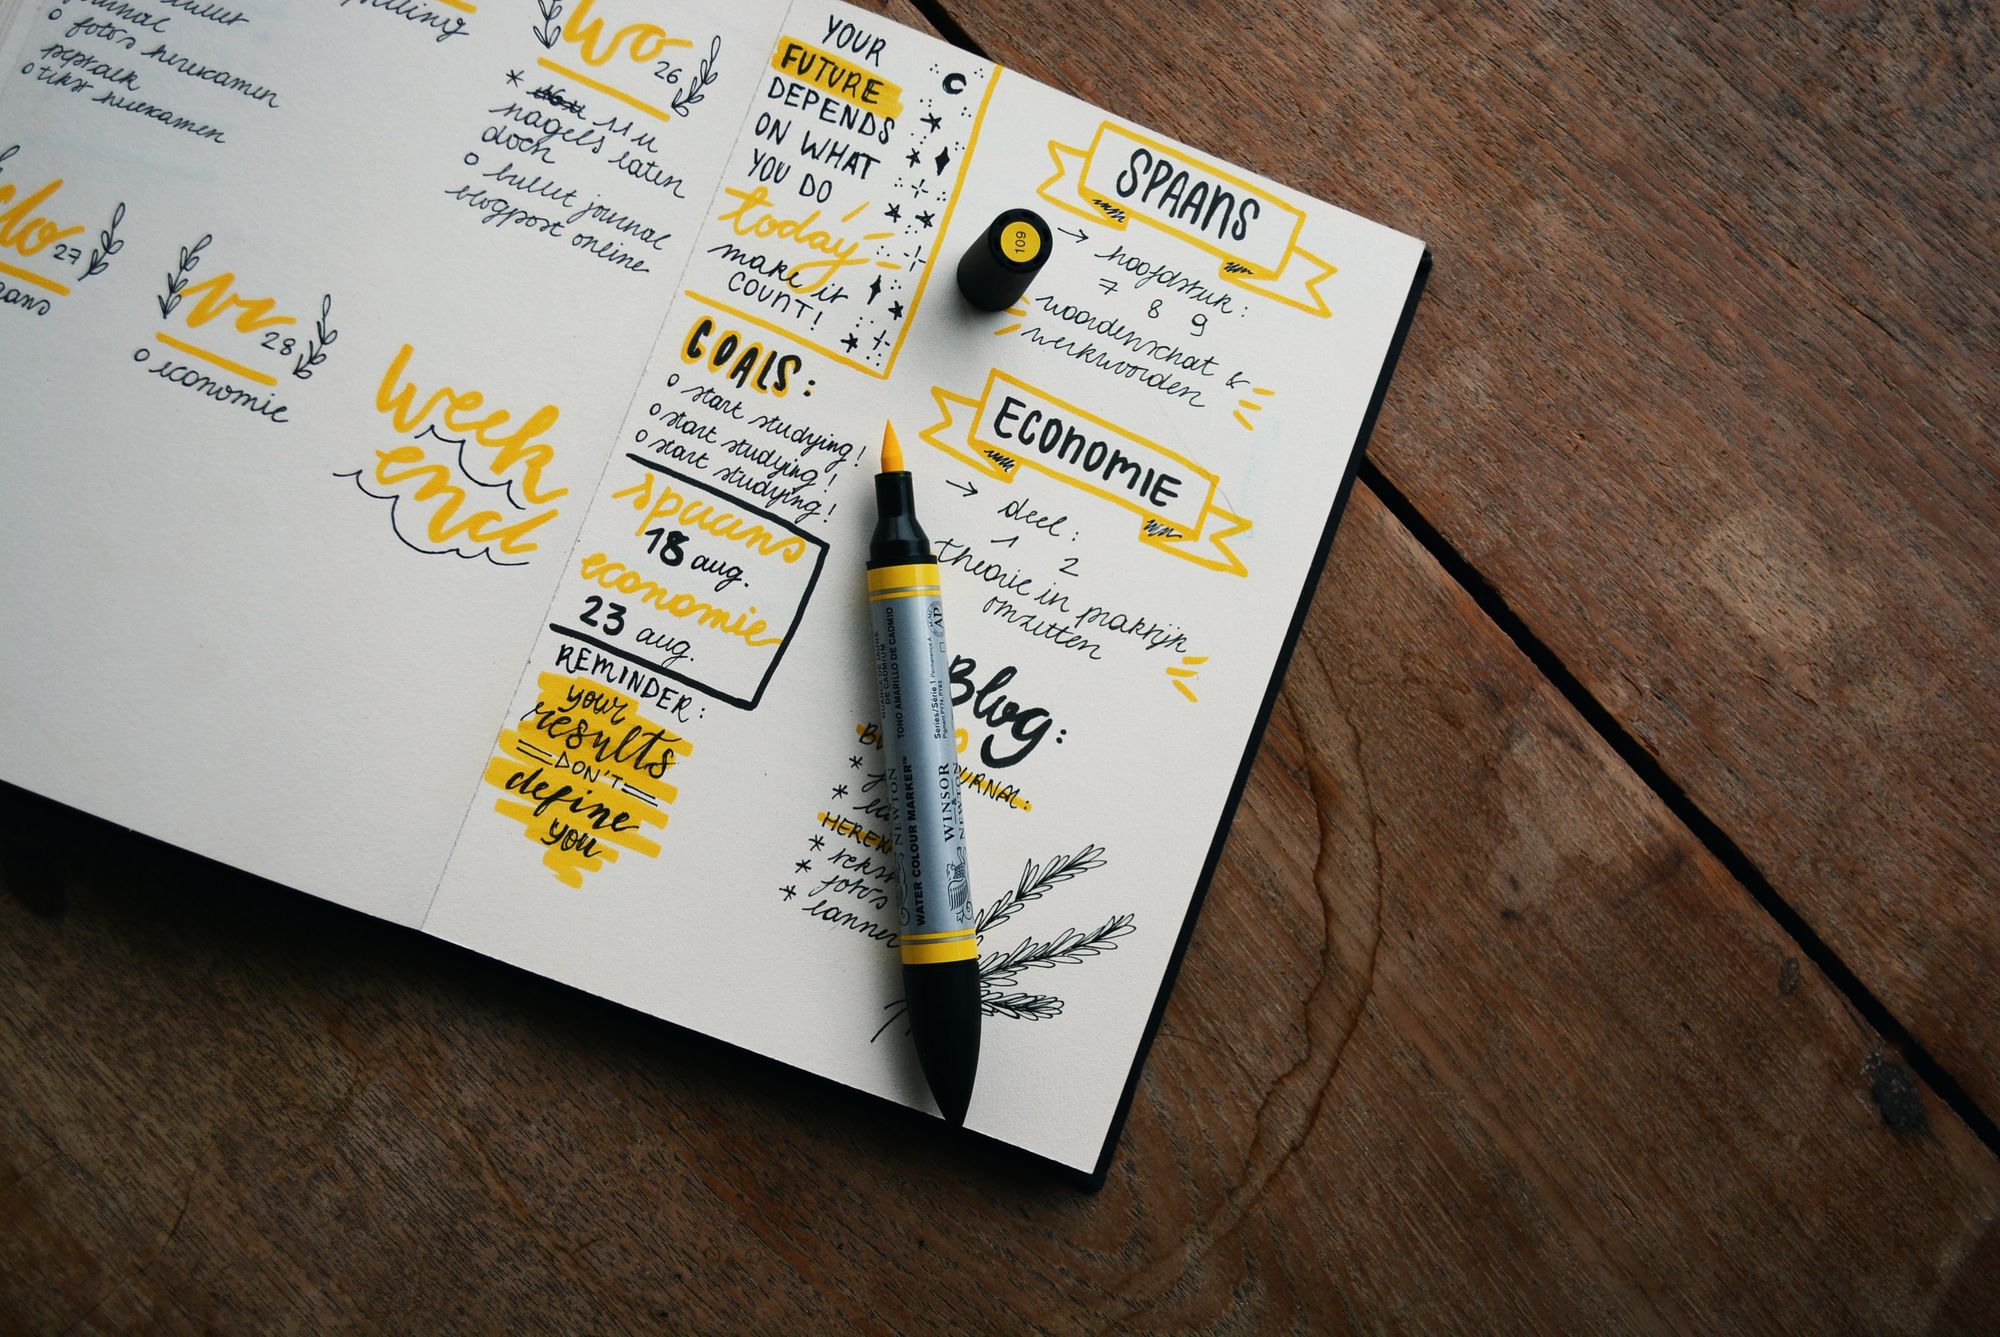 bullet
journal
o foto's herexamen
peptalk
o tekst herexamen
wo 26
* 11 u
nagels laten
doen
o bullet journal
blogpost online
do 27
vr 28
o economie
week
end
YOUR
FUTURE
DEPENDS
ON WHAT
YOU DO
today
make it
COUNT!
GOALS:
o start studying!
o start studying!
o start studying!
spaans
18 aug.
economie
23 aug.
REMINDER:
your
results
DON'T
define
you
SPAANS
→ hoofdstuk:
7 8 9
woordenschat &
werkwoorden
ECONOMIE
→ deel:
1 2
theorie in praktijk
omzetten
Blog:
URNAL:
HEREX
*
*
* tekst
* foto's
* lanner
109
TONO AMARILLO DE CADMIO
DE CADMIUM
Series/Série 1
AP
WATER COLOUR MARKER™
WINSOR
& NEWTON